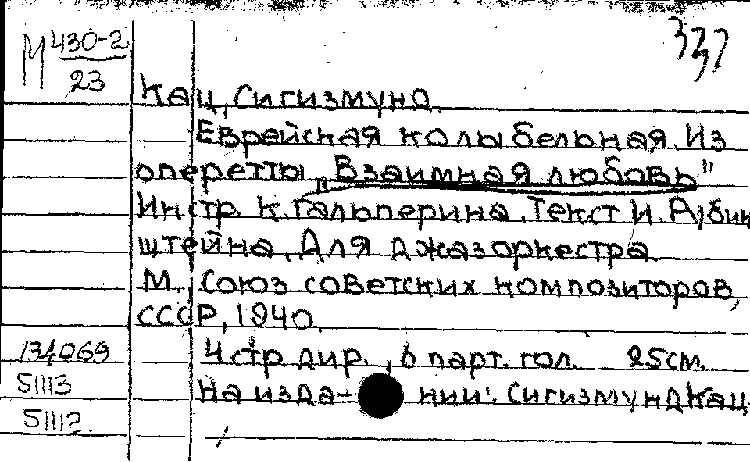 М 430-2
23
337
Кац, Сигизмунд.
Еврейская колыбельная. Из
оперетты „Взаимная любовь"
Инстр. К. Гальперина. Текст И. Рубин
штейна. Для джазоркестра.
М., Союз советских композиторов,
СССР, 1940.
4 стр. дир., 6 парт. гол. 25см.
На изда- нии: Сигизмунд Кац
134069
51113
51112